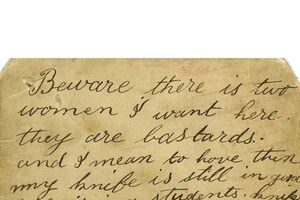 Beware there is two
women I want here.
they are bastards.
and I mean to have them
my knife is still in good
students knife